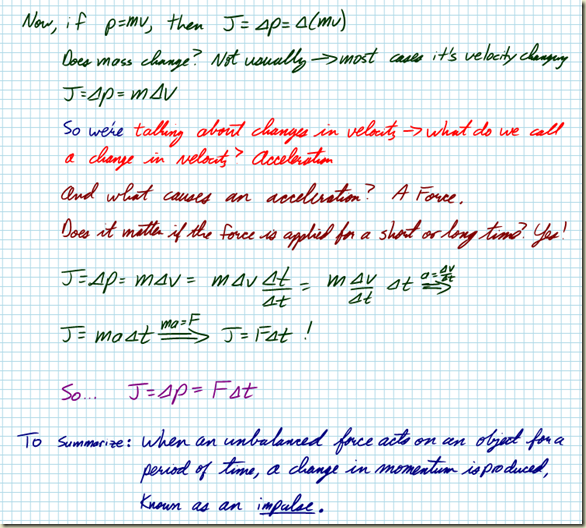 Now, if p=mv, then J=Δp=Δ(mv)
Does mass change? Not usually → most cases it's velocity changing
J=Δp=mΔv
So we're talking about changes in velocity → what do we call
a change in velocity? Acceleration
And what causes an acceleration? A Force.
Does it matter if the force is applied for a short or long time? Yes!
J=Δp= mΔv = mΔv Δt/Δt = m Δv/Δt Δt a=Δv/Δt ⟹
J= maΔt ma=F ⟹ J=FΔt !
So... J=Δp= FΔt
To Summarize: When an unbalanced force acts on an object for a
period of time, a change in momentum is produced,
known as an impulse.